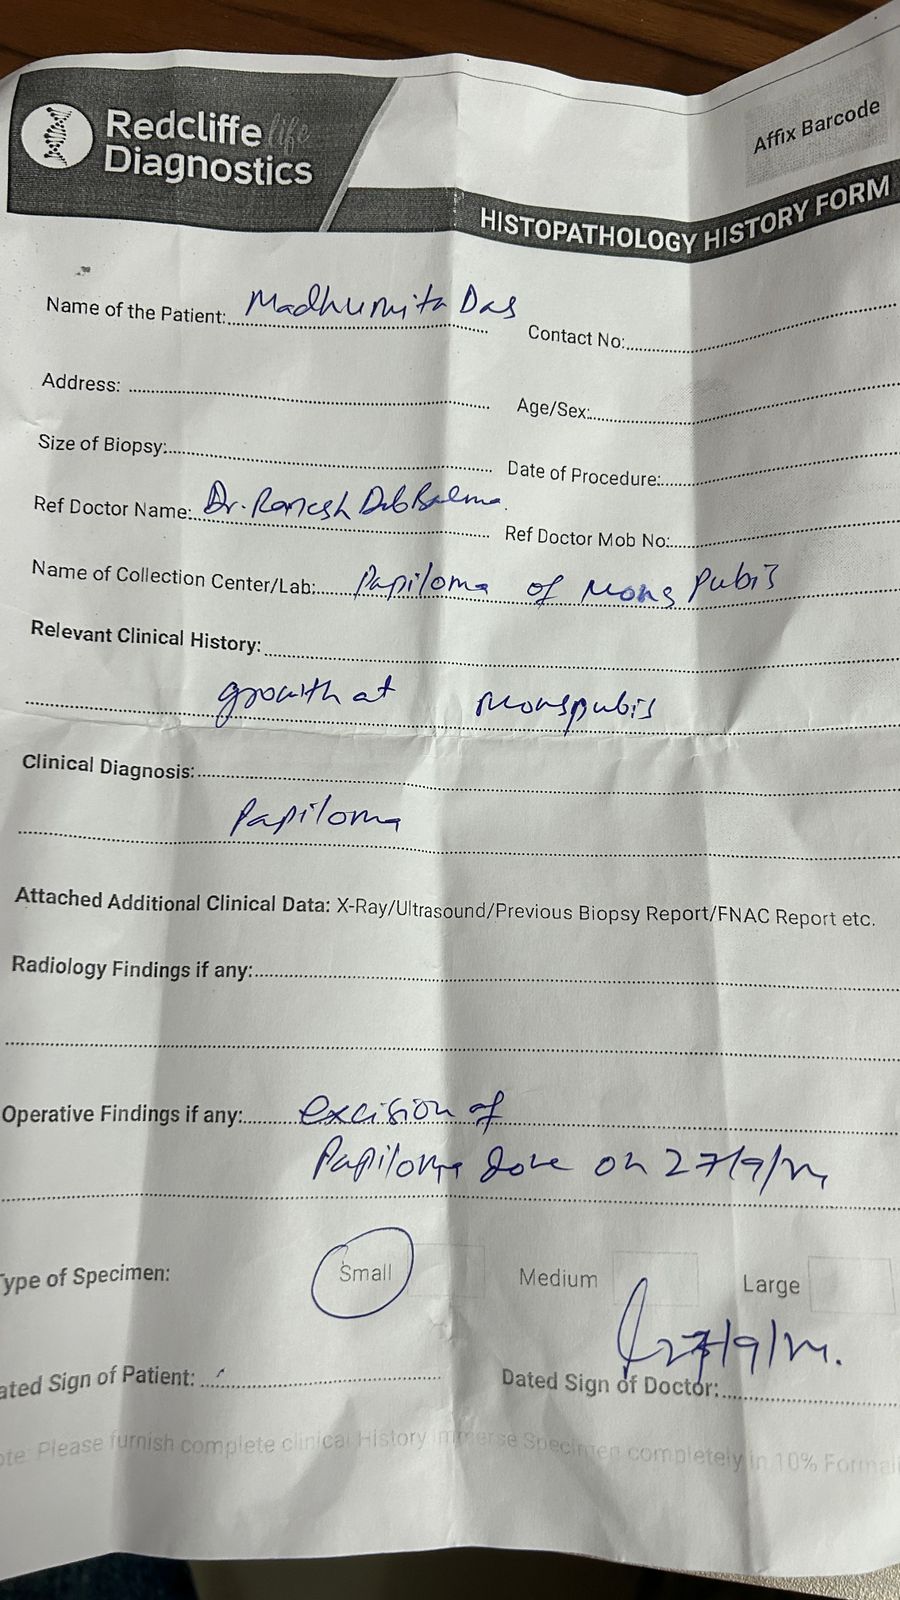 Redcliffe life
Diagnostics
Affix Barcode
HISTOPATHOLOGY HISTORY FORM
Name of the Patient: Madhumita Das Contact No:
Address: Age/Sex:
Size of Biopsy: Date of Procedure:
Ref Doctor Name: Dr. Ramesh DebBarma. Ref Doctor Mob No:
Name of Collection Center/Lab: Papiloma of Mons Pubis
Relevant Clinical History:
growth at monspubis
Clinical Diagnosis:
Papiloma
Attached Additional Clinical Data: X-Ray/Ultrasound/Previous Biopsy Report/FNAC Report etc.
Radiology Findings if any:
Operative Findings if any: excision of
Papiloma done on 27/9/
Type of Specimen: Small Medium Large
27/9/
ated Sign of Patient: Dated Sign of Doctor:
ote: Please furnish complete clinical History Immerse Specimen completely in 10% Formali